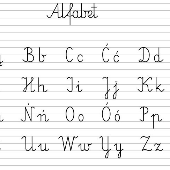 Alfabet
Bb Cc Ćć Dd
Hh Ii Jj Kk
Ńń Oo Óó Pp
Uu Ww Yy Zz